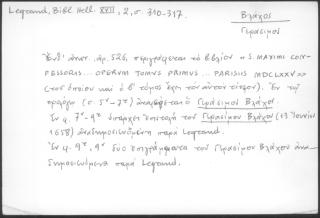 Legrand, Bibl. Hell. XVII, 2, σ. 310-317.
Βλάχος
Γεράσιμος
Ἐνθ' ἀνωτ. ἀρ. 526, περιγράφεται τὸ βιβλίον «S. MAXIMI CON-
FESSORIS... OPERUM TOMUS PRIMUS... PARISIIS MDCLXXV»
(τοῦ ὁποίου καὶ ὁ β' τόμος ἔχει τὸν αὐτὸν τίτλον). Ἐν τῷ
προλόγῳ (σ. 5ʳ-7ʳ) ἀναφέρεται ὁ Γεράσιμος Βλάχος.
Ἐν φ. 7ʳ-9ʳ ὑπάρχει ἐπιστολὴ τοῦ Γερασίμου Βλάχου
1658) ἀναδημοσιευομένη παρὰ Legrand.
Ἐν φ. 9ʳ, 9ᵛ δύο ἐπιγράμματα τοῦ Γερασίμου Βλάχου ἀνα-
δημοσιευόμενα παρὰ Legrand.